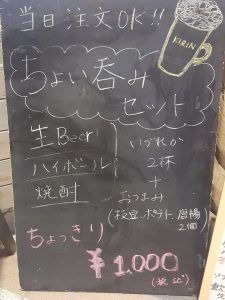 当日注文OK!!
KIRIN
ちょい呑み
セット
生Beer
ハイボール
焼酎
いづれか
2杯
+
おつまみ
(枝豆、ポテト、唐揚
2個)
ちょっきり
¥1,000
(税込)